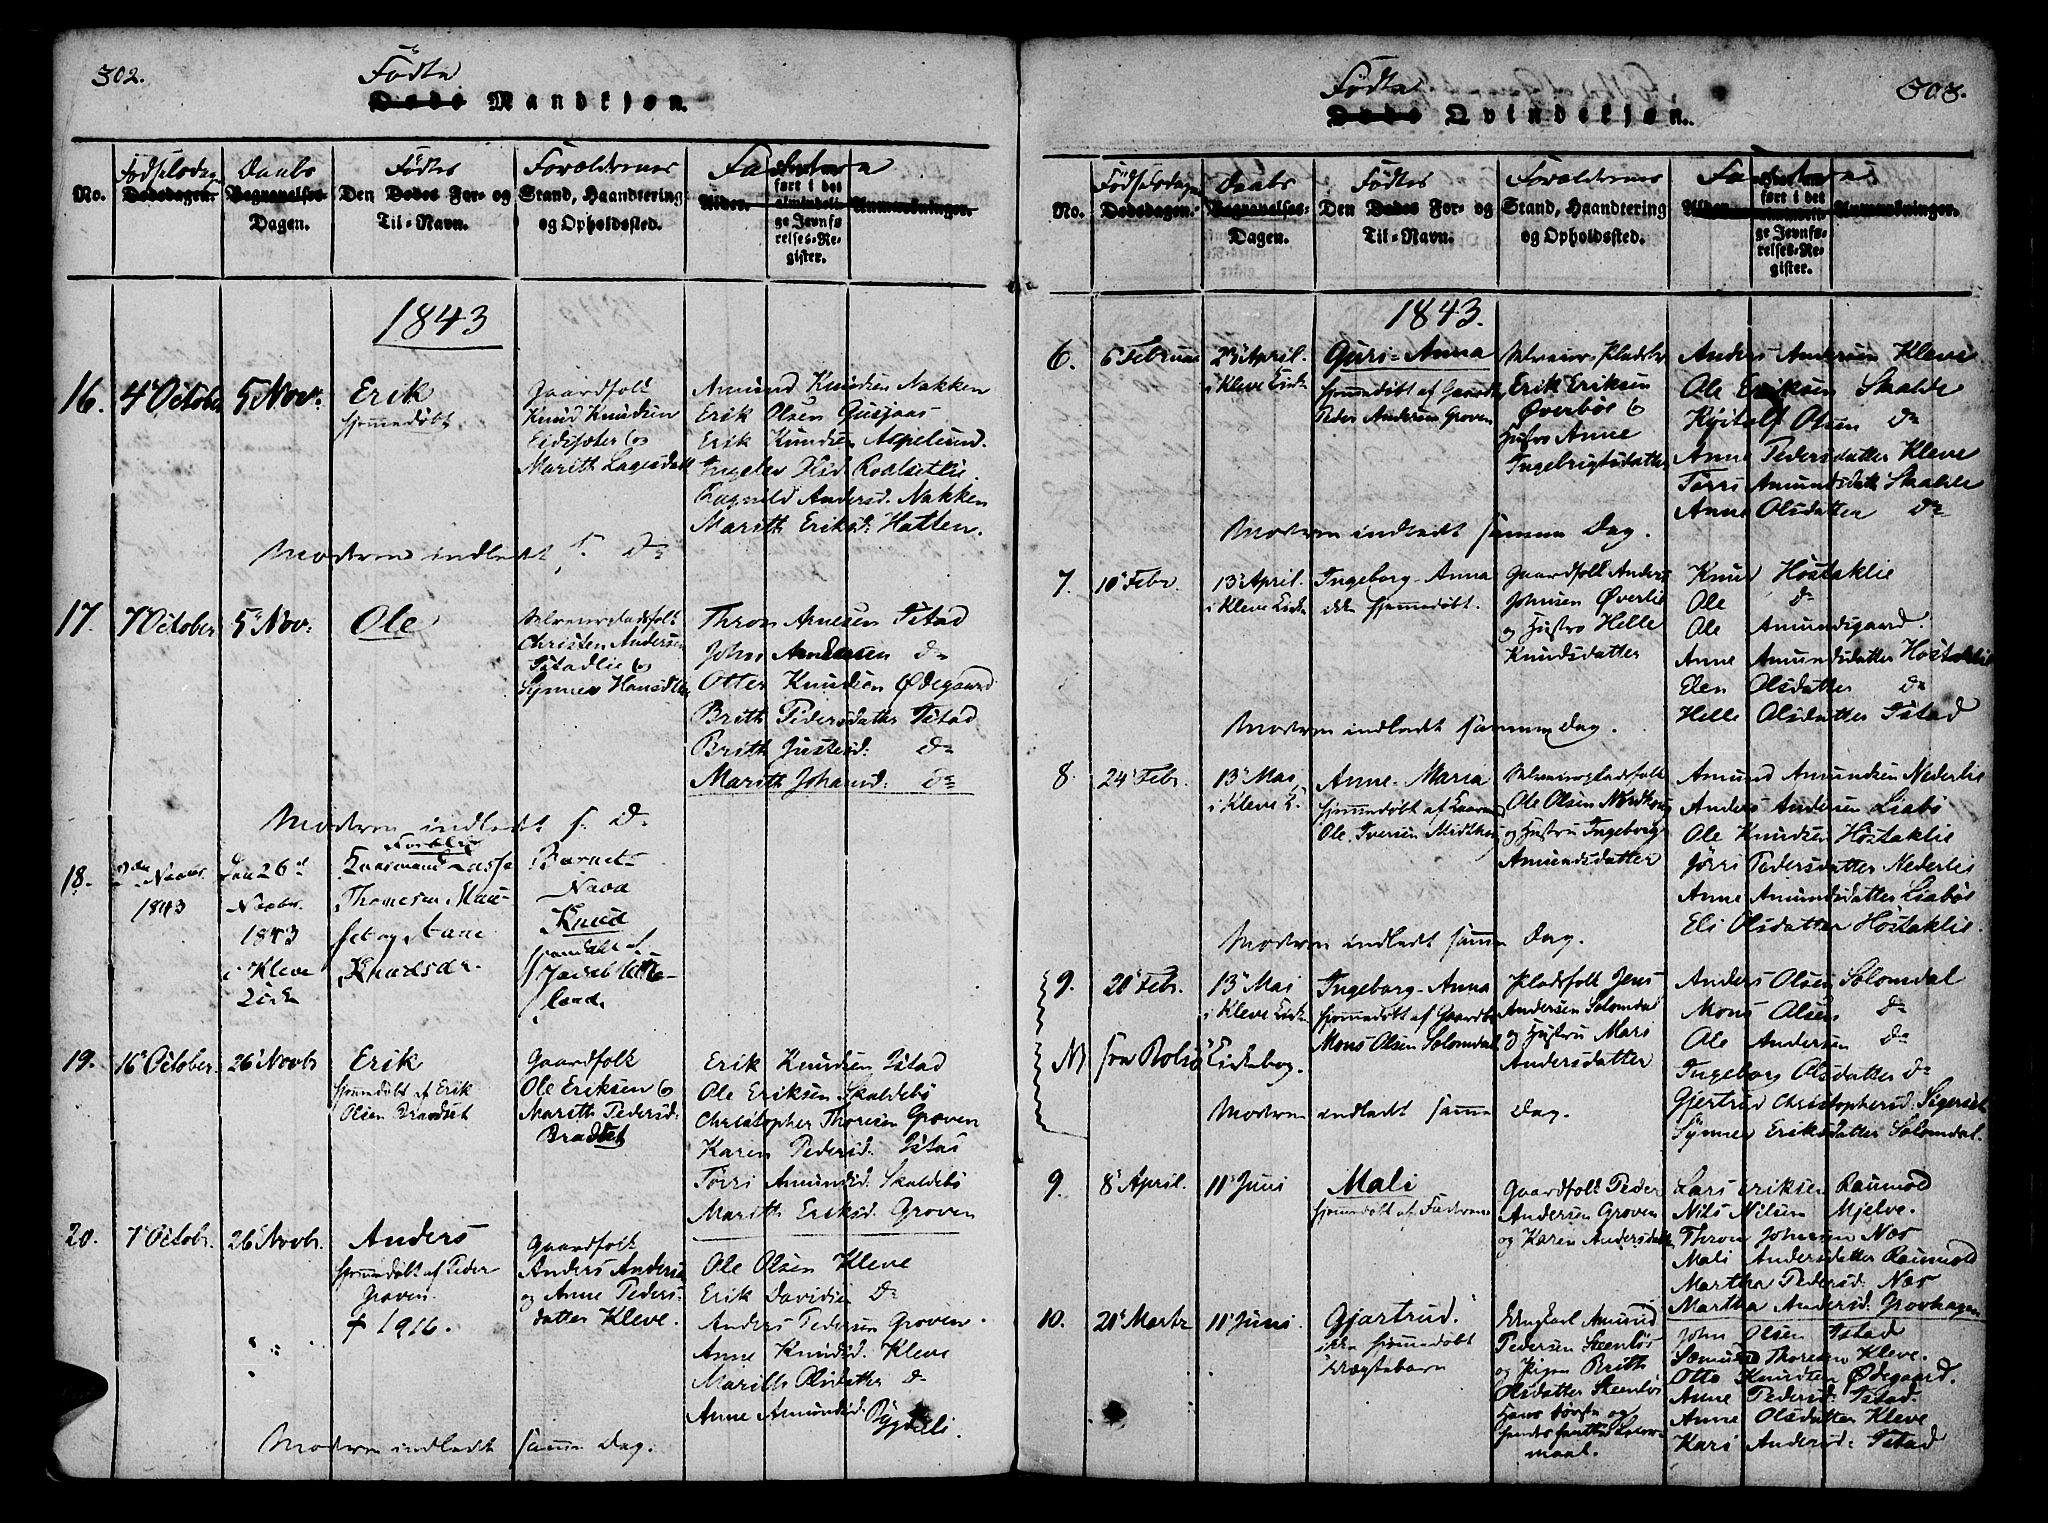 302.
Födte
Døde Mandkjøn.
No.
Fødselsdagen
Dødsdagen.
Daabs
Begravelses-
Dagen.
Fødtes
Den Dødes For- og
Til-Navn.
Forældrenes
Stand, Haandtering
og Opholdssted.
Faddere
Alder.
ført i det
almindeli-
ge Jevnfø-
relses-Re-
gister.
Anmærkninger.
1843
16. 4 October 5 Nov:
Erik
hjemmedøbt
Gaardfolk
Knud Knudsen
Eidsæter og
Marith Lagesdatt
Amund Knudsen Nakken
Erik Olsen Gusjaas
Erik Knudsen Aspelund.
Ingelev Roalsetlie
Ragnild Andersd. Nakken
Marith Eriksd: Hatten.
Moderen indledet s. D
17. 7 October 5 Nov:
Ole
Christen Andersen
Istadlie og
Synnev Hansdtr
Thron Arnesen Istad
John Arnesen do
Otter Knudsen Ødegaard
Brith Pedersdatter Istad
Brith Justesd: do
Marith Johansd: do
Moderen indledet s. D.
18. 1843
Den 26d
Novbr.
1843
i Kleve
Kirke
Thomesen
set og
Knudsdr.
Barnets
Navn
Knud
hjemdøbt af
19. 16 October 26 Novbr
Erik
hjemmedøbt af Erik
Olsen Bradset
Gaardfolk
Ole Eriksen og
Marith Pedersd.
Bradset
Erik Knudsen Istad
Ole Eriksen Skaldebø
Christopher Thoresen Groven
Karen Pedersd. Istad
Tørri Amundsd. Skaldebø
Marith Eriksd. Groven
20. 7 Octobr. 26 Novbr.
Anders
hjemmedøbt af Peder
Groven
† 1916.
Gaardfolk
Anders Anders
og Anne Peders-
datter Kleve.
Ole Olsen Kleve
Erik Davidsen do
Anders Pedersen Groven.
Anne Knudsd. Kleve
Marith Olsdatter do
Anne Amundsd. Bygdeli
Moderen indledt samme Dag.
303.
Födte
Døde Qvindekjøn.
No.
Fødselsdagen
Dødsdagen.
Daabs
Begravelses-
Dagen.
Fødtes
Den Dødes For- og
Til-Navn.
Forældrenes
Stand, Haandtering
og Opholdssted.
Faddere
Alder.
ført i det
almindeli-
ge Jevnfø-
relses-Re-
gister.
Anmærkninger.
1843.
6. 6 Februar 23 April.
i Kleve Kirk
Guri-Anna
hjemmedøbt af Gaardm
Peder Andersen Groven
Erik Eriksen
Øverbøs og
Hustro Anne
Ingebrigtsdatter
Anders Andersen Kleve
Ole Eriksen Skalde
Olsen do
Anne Pedersdatter Kleve
Tørri Amundsdatt Skalde
Anne Olsdatter do
Moderen indledt samme Dag.
7. 10 Febr. 13 April.
i Kleve Kirke
Ingeborg-Anna
ikke hjemmedøbt.
Gaardfolk Anders
Johnsen Øverlie
og Hustro Helle
Knudsdatter
Knud Høstaklie
Ole do
Ole Amundsgaard.
Anne Amundsdatter Høstaklie
Elen Olsdatter do
Helle Olsdatter Istad
Moderen indledt samme Dag.
8. 24 Febr. 13 Mai
i Kleve K.
Anne-Maria
hjemmedøbt af
Ole Iversen
Ole Olsen
og Hustru Ingeborg
Amundsdatter
Amund Amundsen Nederlie
Anders Andersen Liabø
Ole Knudsen Høstaklie
Jørri Pedersdatter Nederlie
Anne Amundsdatter Liabøs
Eli Olsdatter Høstaklie.
Moderen indledt samme Dag.
9. 20 Febr. 13 Mai
i Kleve Kirke
Ingeborg-Anna
hjemmedøbt af Gaardm
Mons Olsen Solemdal
Pladsfolk Jens
Andersen Solemdal
og Hustru Mari
Andersdatter
Anders Olsen Solemdal
Mons Olsen do
Ole Andersen do
Ingeborg Olsdatter do
Gjertrud Christophersd. Sigerset
Synnev Eriksdatter Solemdal.
NB fra Bolsø Kirkebog.
Moderen indledt samme Dag.
9. 8 April. 11 Juni
Mali
hjemmedøbt af Faderen
Gaardfolk Peder
Andersen Groven
og Karen Andersdatt
Lars Eriksen Raumold
Nils Nilsen Mjelve.
Thron Johnsen Næs
Mali Andersdatter Raumold
Martha Pedersd. Næs
Martha Andersd. Grovhagen
10. 21 Marts 11 Juni
Gjertrud.
ikke hjemmedøbt
uægtebarn
Ungkarl Amund
Pedersen Steenløs
og Pigen Brith
Olsdatter Steenløs
Hans første og
hendes
maal.
John Olsen Istad
Thoresen Kleve.
Otto Knudsen Ødegaard.
Anne Pedersd. Istad.
Anne Olsdatter Kleve
Kari Andersd: Istad